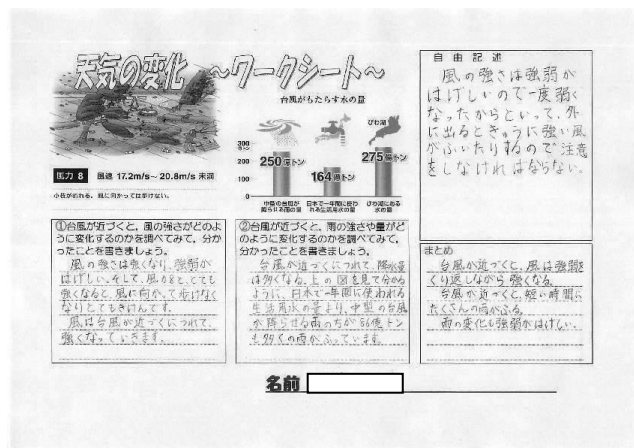 天気の変化 ～ワークシート～
台風がもたらす水の量
300
億トン
250億トン
164億トン
びわ湖
275億トン
中型の台風が
降らせる雨の量
日本で一年間に使わ
れる生活用水の量
びわ湖にある
水の量
風力 8 風速 17.2m/s～20.8m/s 未満
小枝が折れる。風に向かっては歩けない。
自由記述
風の強さは強弱が
はげしいので一度弱く
なったからといって、外
に出るときゅうに強い風
がふいたりするので注意
をしなければならない。
①台風が近づくと、風の強さがどのよ
うに変化するのかを調べてみて、分か
ったことを書きましょう。
風の強さは強くなり、強弱が
はげしい。そして、風力8と、とても
強くなると、風に向かって歩けなく
なりとてもきけんです。
風は台風が近づくにつれて、
強くなっていきます。
②台風が近づくと、雨の強さや量がど
のように変化するのかを調べてみて、
分かったことを書きましょう。
台風が近づくにつれて、降水量
は多くなる。上の図を見て分かる
ように、日本で一年間に使われる
生活用水の量より、中型の台風
が降らせる雨の方が86億トン
も多くの雨がふっています。
まとめ
台風が近づくと、風は強弱を
くり返しながら強くなる。
台風が近づくと、短い時間に
たくさんの雨がふる。
雨の変化も強弱がはげしい。
名前